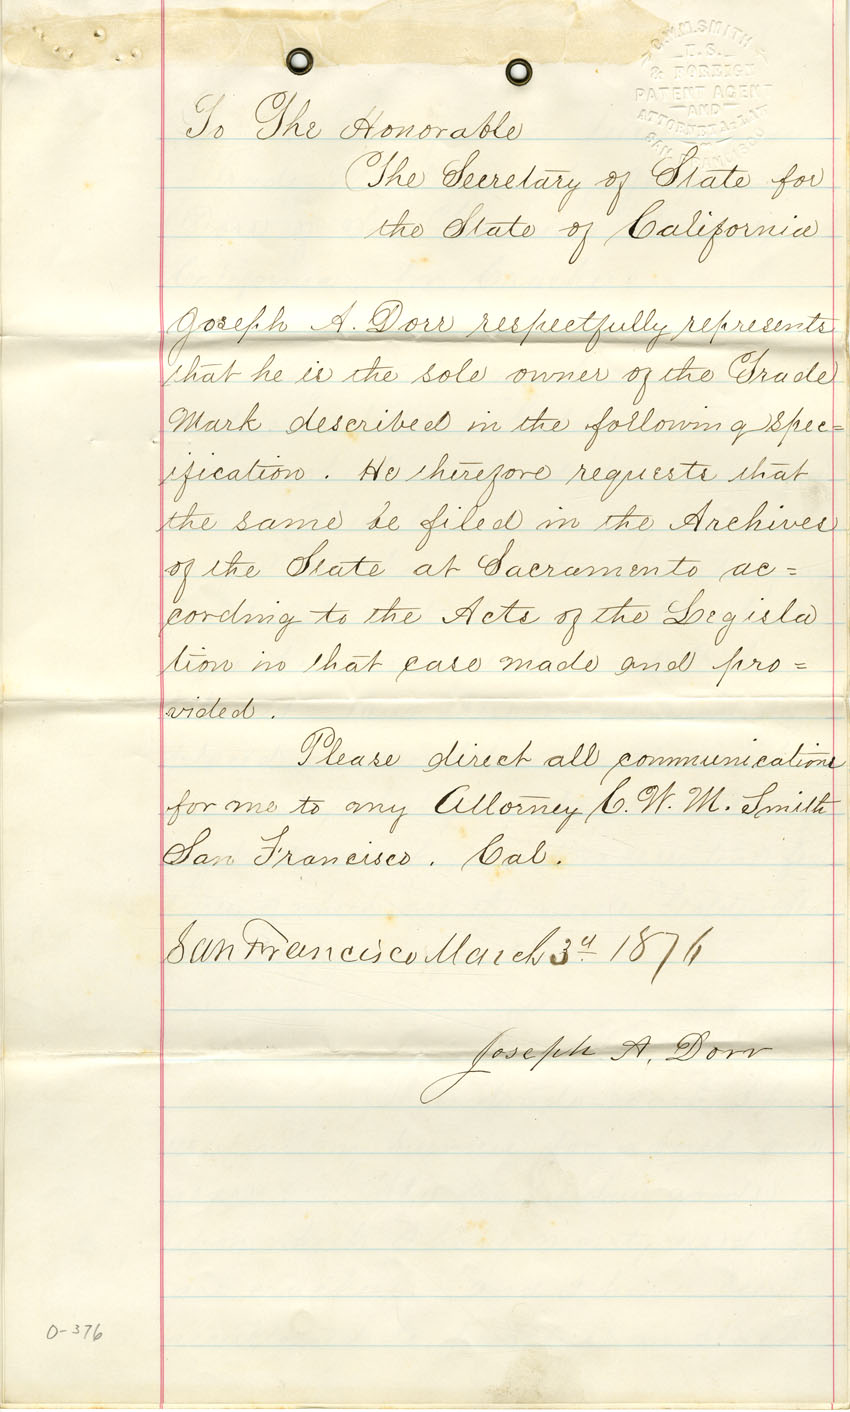 C. W. M. SMITH
U.S.
& FOREIGN
PATENT AGENT
AND
ATTORNEY AT LAW
SAN FRANCISCO
To The Honorable
The Secretary of State for
the State of California
Joseph A. Dorr respectfully represents
that he is the sole owner of the Trade
Mark described in the following spec=
ification. He therefore requests that
the same be filed in the Archives
of the State at Sacramento ac=
cording to the Acts of the Legisla
tion in that case made and pro=
vided.
Please direct all communications
for me to my Attorney C. W. M. Smith
San Francisco. Cal.
San Francisco March 3d 1876
Joseph A. Dorr
0-376